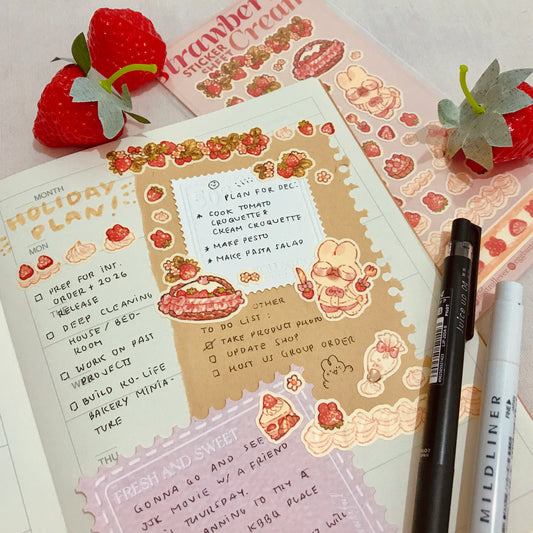 Strawberry
Cream
STICKER
SHEET
MONTH
HOLIDAY
PLAN!
MON
PREP FOR INT.
ORDER + 2026
RELEASE
DEEP CLEANING
HOUSE / BED-
ROOM
WORK ON PAST
PROJECTS
BUILD RO-LIFE
BAKERY MINIA-
TURE
THU
PLAN FOR DEC:
* COOK TOMATO
CROQUETTE &
CREAM CROQUETTE
* MAKE PESTO
* MAKE PASTA SALAD
OTHER
TO DO LIST:
TAKE PRODUCT PHOTO
UPDATE SHOP
HOST US GROUP ORDER
FRESH AND SWEET
GONNA GO AND SEE
JJK MOVIE W/ A FRIEND
THURSDAY.
PLANNING TO TRY A
KBBQ PLACE
WILL
Juice up
MILDLINER